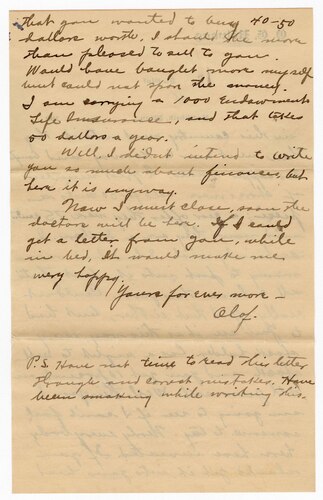 that you wanted to buy 40-50
dollars worth. I should be more
than pleased to sell to you.
Would have bought more myself
but could not spare the money.
I am carrying a 1000 Endowment
Life Insurance, and that takes
50 dollars a year.
Well, I didnt intend to write
you so much about finances, but
here it is anyway.
Now I must close, soon the
doctors will be here. If I could
get a letter from you, while
in bed, It would make me
very happy.
Yours for ever more —
Olof.
P.S. Have not time to read this letter
through and correct mistakes. Have
been smoking while writing this.